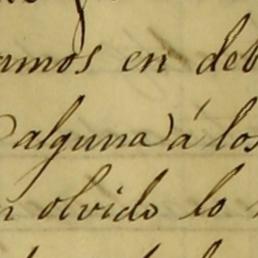 amos en deb
alguna) á los
n olvido lo